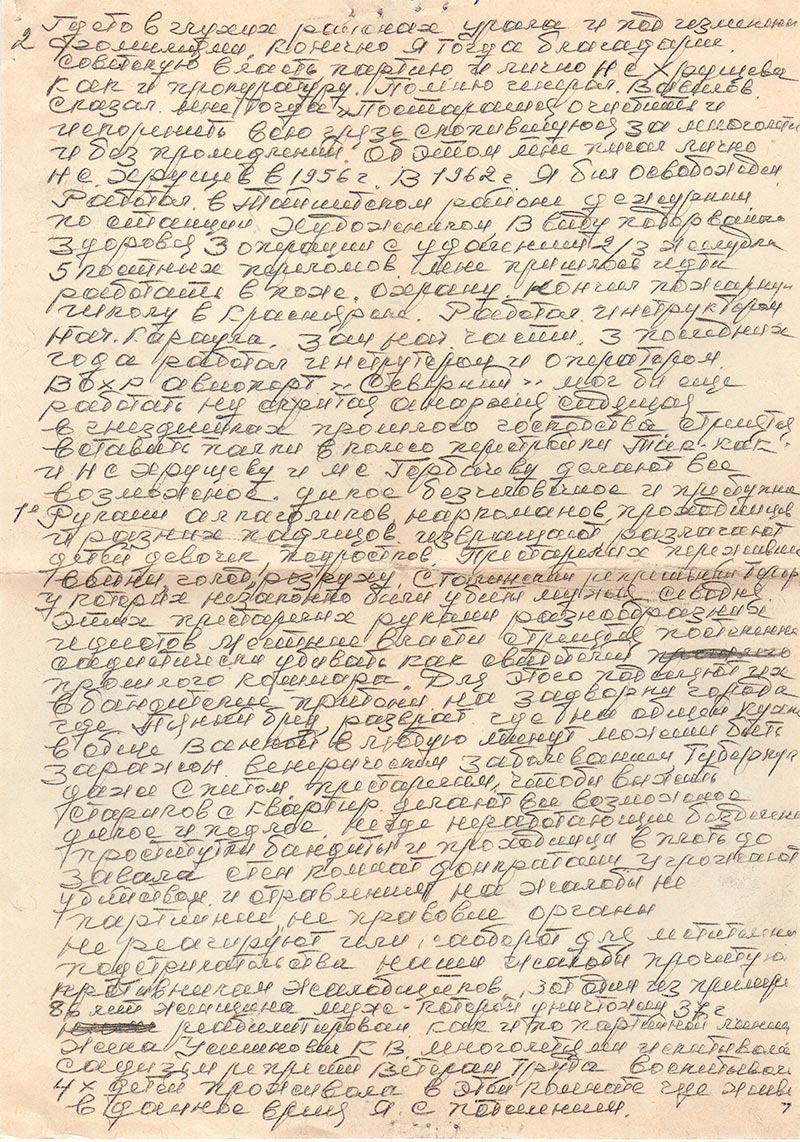 Где то в глухих районах урала и под изменени
2 фомилиями. Конечно Я тогда благадарил
советскую власть партию и лично Н С Хрущева
как и прокуратуру. Помню генерал. Вавилов
сказал мне тогда, Постараимся очистить и
испоренить всю грязь скопившуюся за многолети
и без промедлений. Об этом мне писал лично
Н С. Хрущев в 1956 г. В 1962 г Я был освобожден
Работал в Тайшетском районе дежурним
по станции Художником В виду подорванно
здоровья 3 операций с удалением 2/3 желудка
5 костных переломов мне пришлось идти
работать в пож. охрану. кончил пожарну
школу в Красноярске. Работал инструктором
Нач. Караула. зам нач. части. 3 последних
года работал инструтором и оператором
ВОХР авиопорт "Северний" мог би еще
работать ну скритая анархия сидящая
в гнездишках прошлого господства стримятся
вставить палки в колесо перестройки Так-как
и Н С Хрущеву и М С Горбачеву делают все
возможное. дикое безчиловечное и преступно
1° Руками алкаголиков, наркоманов, проходимцев
и разних падлицов. извращают развлачают
детей девочек подростков. Престарелих переживши
войни, голод, розруху. Сталинский репресивний террор
у которих незаконно били убити мужья. Севодня
этих престарелих руками разнообразних
идиотов местние власти стримятся постепенно
садистически убивать как сведетелей
прошлого кошмара. Для этого подселяют их
в бандитские притони. на задворки города
где пянки бред, разврат где на общей кухне
в обще ванной в любую минут можеш быть
заражон венерическим заболеванием Туберкул
даже Спитом. престарелим, чтоби вижить
Стариков с Квартир. делают все возможное
дикое и подлое. нигде неработающие бездельни
проститутки бандиты и проходимци в плоть до
завала стен комнат домкратами угрожают
убийством и отравлением на жалоби не
партийние не правовие органи
не реагируют или, наоборот для мстительно
подстрикательства наши жалоби прочитую
противникам жалобщиков, вот один из пример
86 лет женщина муж-которой уничтожин 37 г
реабилитирован как и по партийной линии
Жена К В. многолетями испитивала
садизм репресий Ветеран Труда воспитывал
4х детей проживала в этой комнате где живе
в данное время Я с потомением.